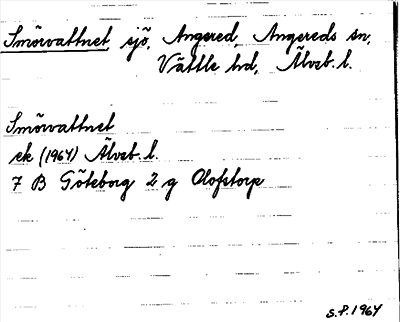 Smörvattnet sjö, Angered, Angereds sn,
Vättle hd, Älvsb. l.
Smörvattnet
ek (1964) Älvsb. l.
7 B Göteborg 2 g Olofstorp
S.P. 1964